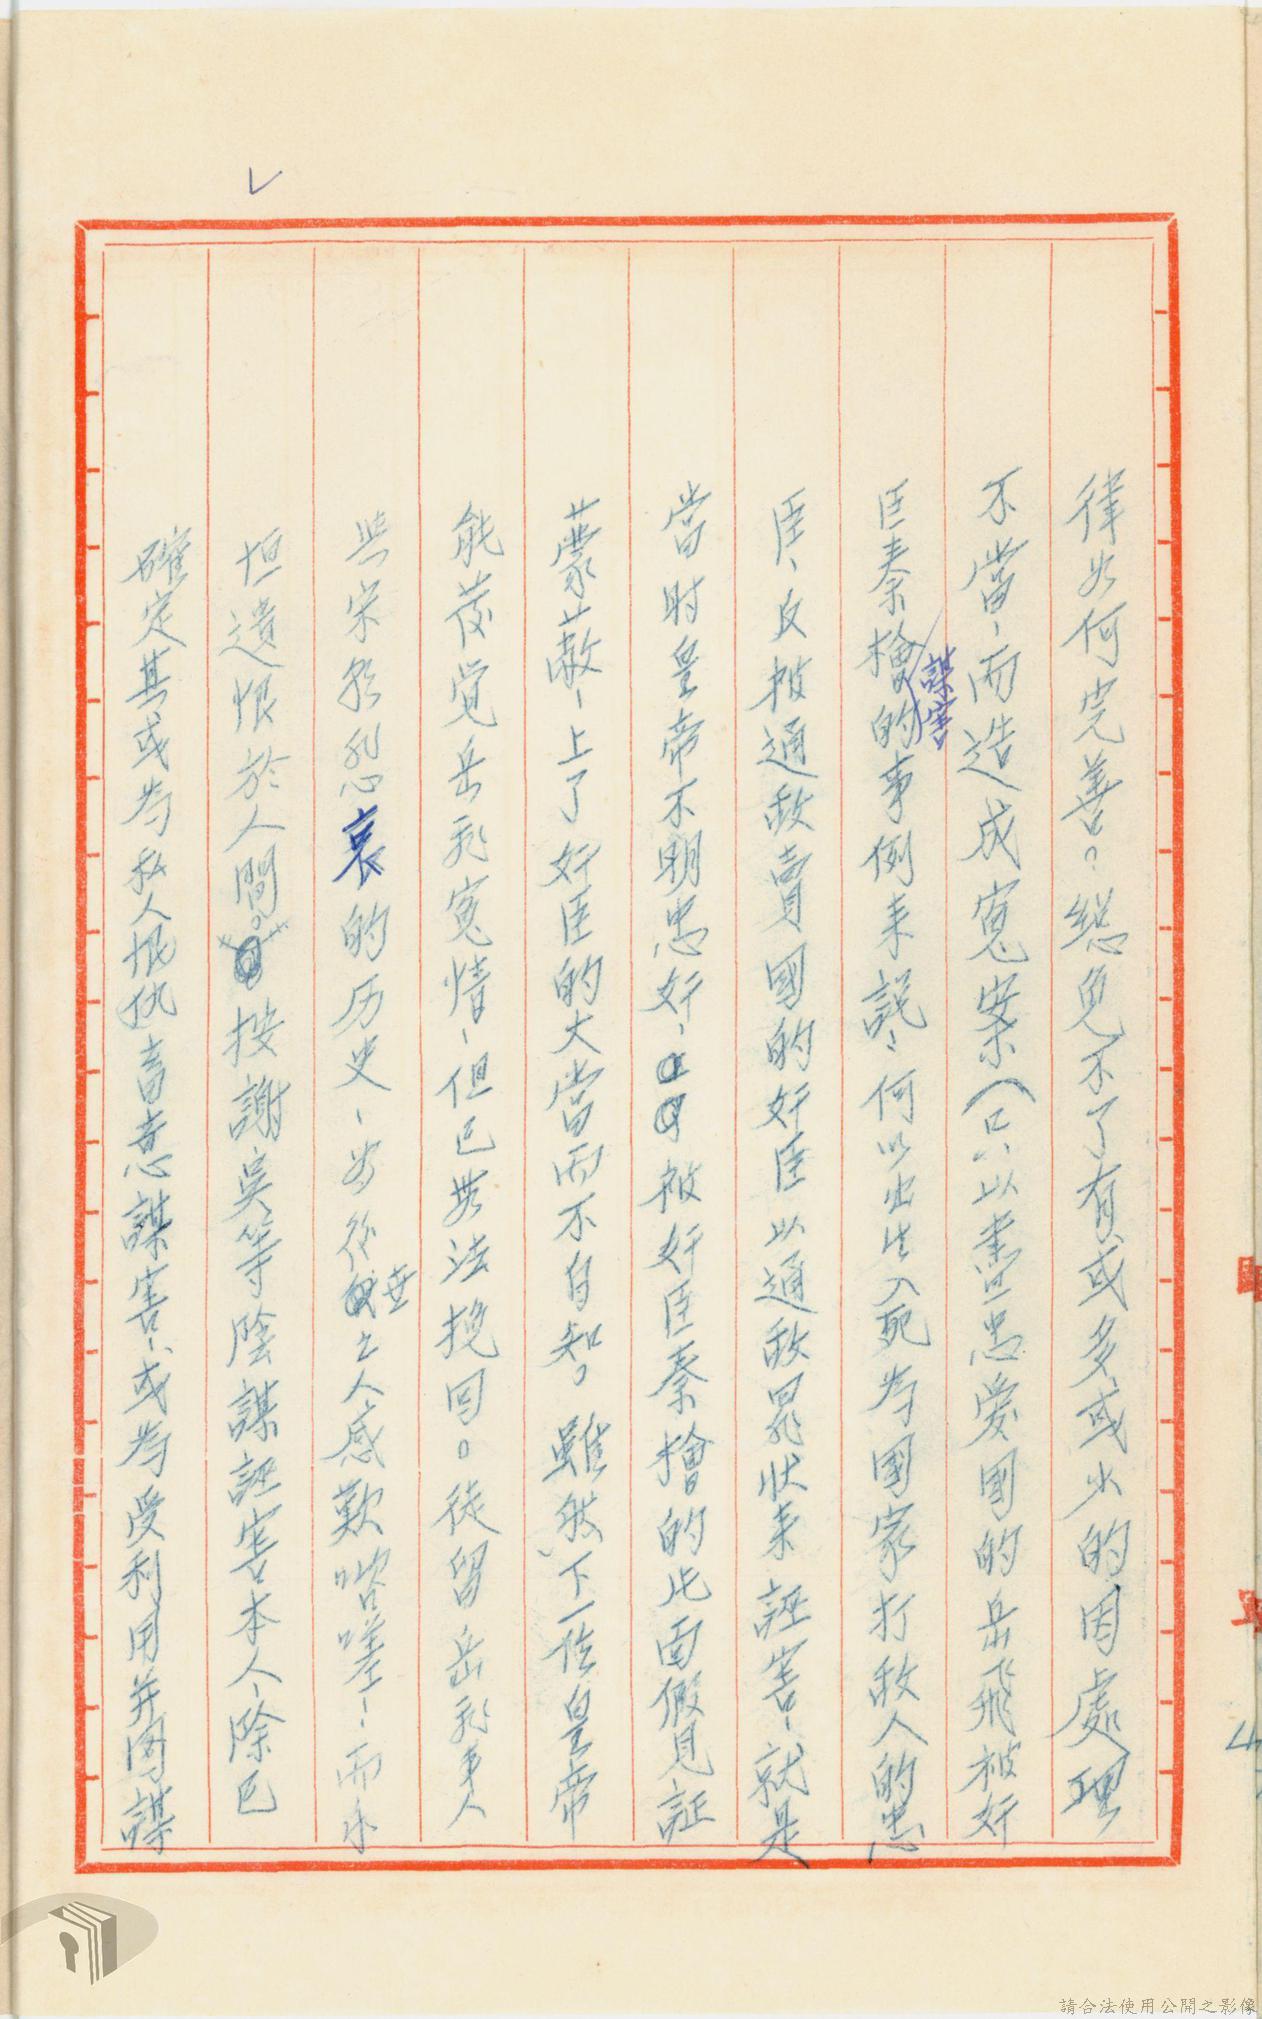 律如何完善。總免不了有或多或少的因處理
不當、而造成寃案(只以盡忠愛國的岳飛被奸
臣秦檜謀害的事例来說、何以出生入死為國家打敵人的忠
臣、反被通敵賣國的奸臣以通敵罪狀来誣害、就是
當時皇帝不明忠奸、被奸臣秦檜的片面假見証
蒙蔽、上了奸臣的大當而不自知。雖然下一任皇帝
能發覚岳飛寃情、但已無法挽回。徒留岳飛事人
与宋怨哀的历史、为後世之人感歎嗟、而永
恒遺恨於人間。按謝吳等陰謀誣害本人、除已
確定其或為私人恨仇蓄意謀害、或為受利用并图謀
請合法使用公開之影像